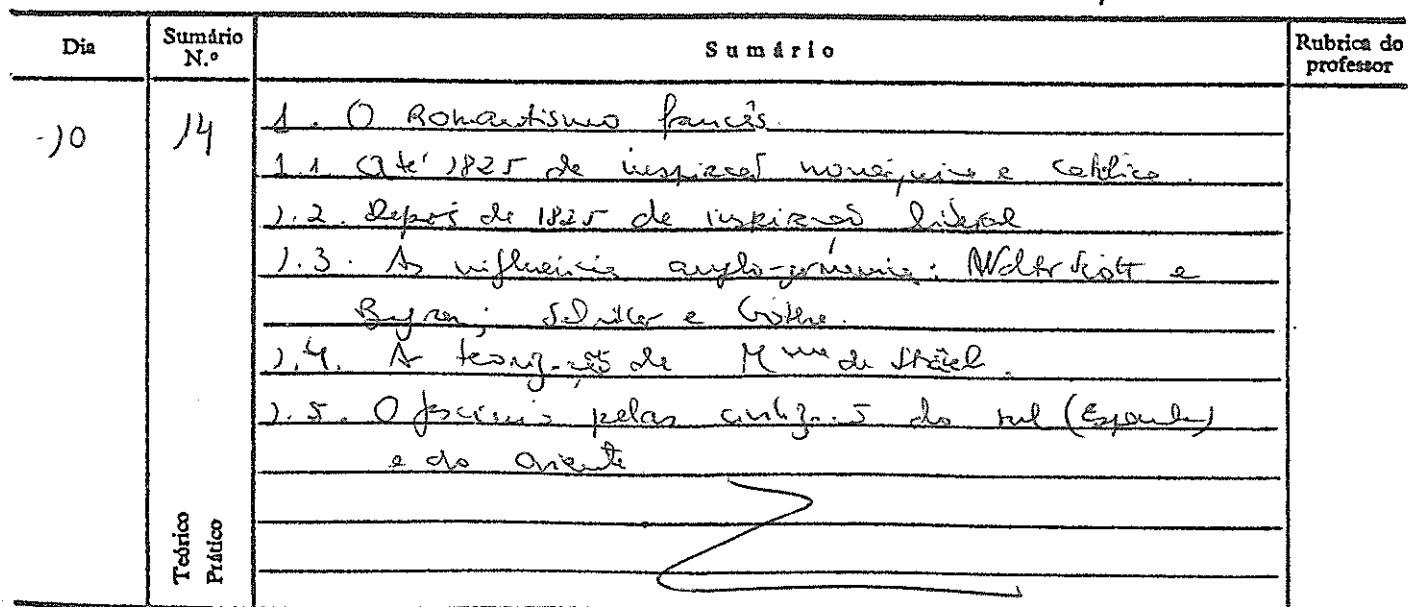 Dia Sumário N.º Sumário Rubrica do professor
10 14 1. O Romantismo francês.
1.1 Até 1825 de inspiração monárquica e católica.
1.2. Depois de 1825 de inspiração liberal
1.3. As influências anglo-germânicas: Walter Scott e
Byron; Schiller e Göthe.
1.4. A teorização de Mme de Stäel.
1.5. O fascínio pelas civilizações do sul (Espanha)
e do Oriente
Teórico
Prático